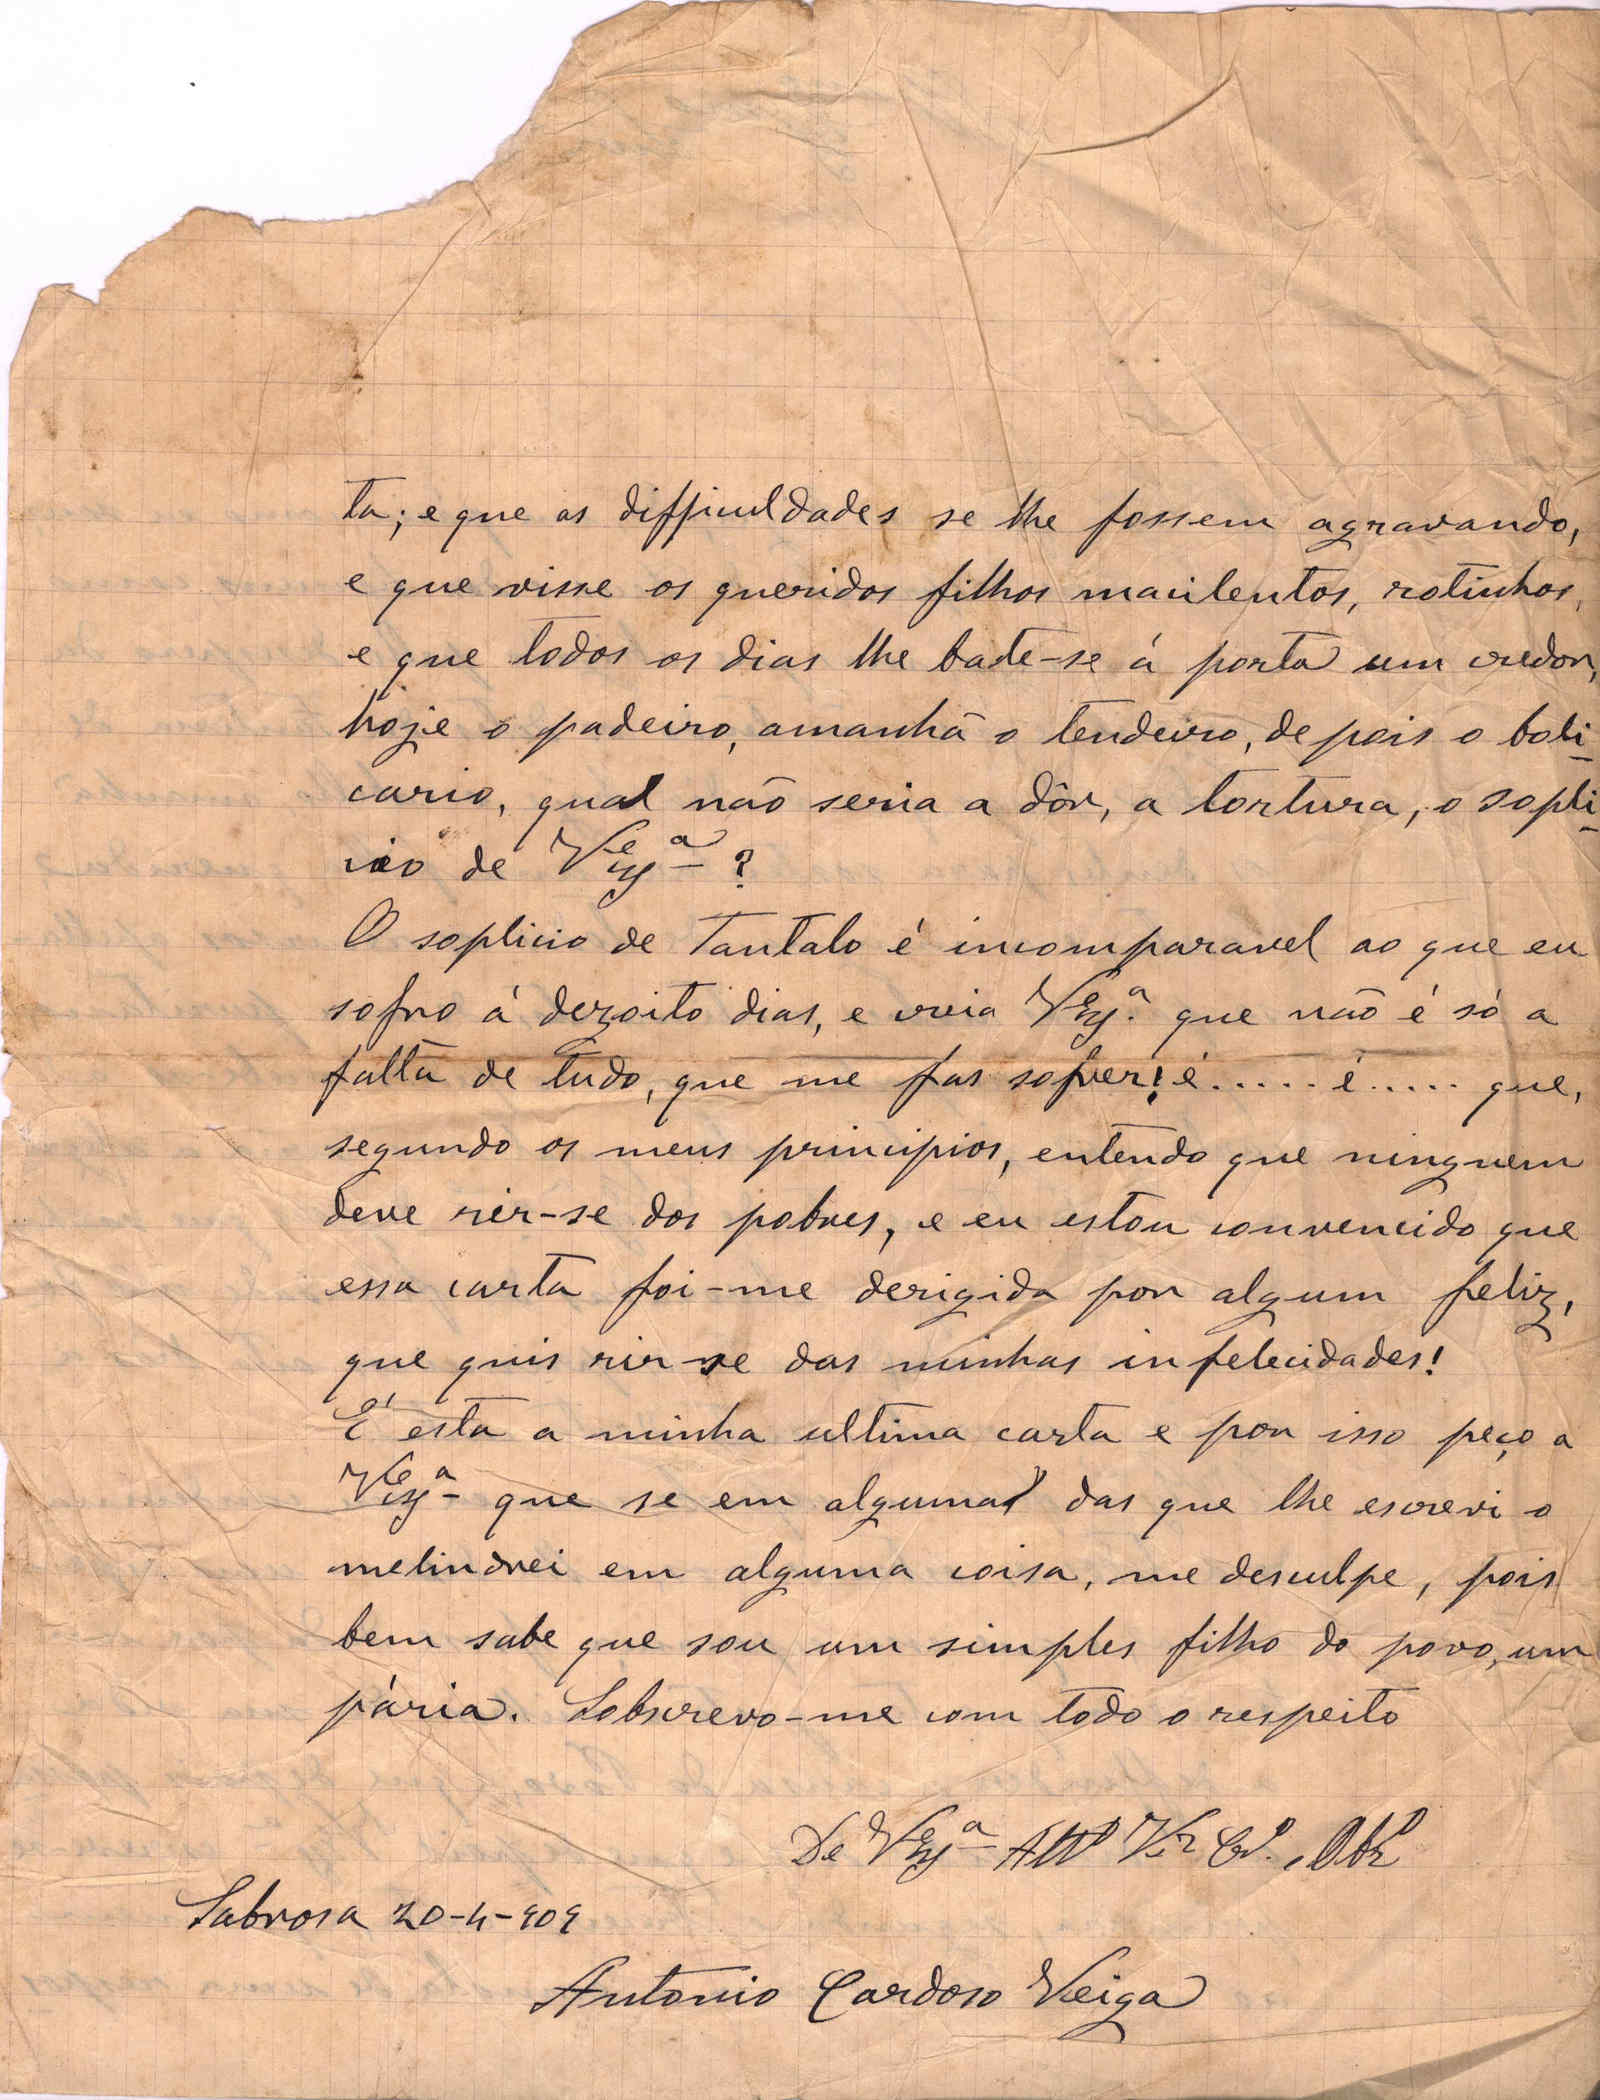 ta; e que as difficuldades se lhe fossem agravando,
e que visse os queridos filhos macilentos, rotinhos,
e que todos os dias lhe bate-se á porta um credor,
hoje o padeiro, amanhã o tendeiro, depois o boti-
cario, qual não seria a dôr, a tortura, o sopli-
cio de V Exª ?
O soplicio de Tantalo é incomparavel ao que eu
sofro á dezoito dias, e creia V Exª. que não é só a
falta de tudo, que me fas sofrer! é..... é..... que,
segundo os meus principios, entendo que ninguem
deve rir-se dos pobres, e eu estou convencido que
essa carta foi-me derigida por algum feliz,
que quis rir-se das minhas infelecidades!
É esta a minha ultima carta e por isso peço a
V Exª que se em alguma das que lhe escrevi o
melindrei em alguma coisa, me desculpe, pois
bem sabe que sou um simples filho do povo, um
pária. Sobscrevo-me com todo o respeito
De V Exª Attº Vor Crº. Obrº
Sabrosa 20-4-909
Antonio Cardoso Veiga